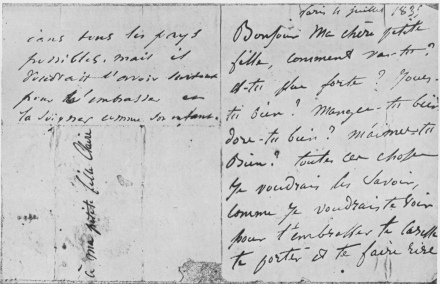 Paris 4 juillet 183
Bonjour Ma chère petite
fille, comment vas-tu?
es-tu plus forte? Joues-
tu bien? Manges-tu bien
dors-tu bien? m'aimes-tu
bien? toutes ces choses
Je voudrais les Savoir,
comme Je voudrais te voir
pour t'embrasser te caresser
te porter et te faire rire
dans tous les pays
possibles. mais il
voudrait t'avoir surtout
pour t'embrasser et
te soigner comme son enfant.
à ma petite fille Claire